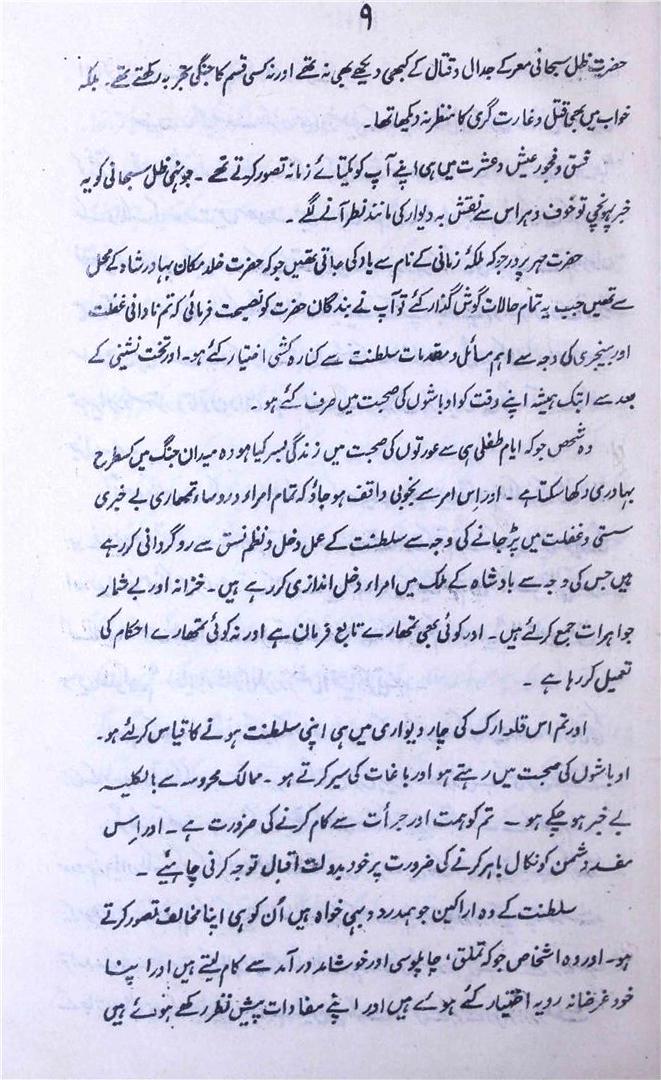 ۹
حضرت ظل سبحانی معرکے جدال و قتال کے کبھی دیکھے بھی نہ تھے اور نہ کسی قسم کا جنگی تجربہ رکھتے تھے۔ بلکہ
خواب میں بھی قتل و غارت گری کا منظر نہ دیکھا تھا۔
فسق و فجور عیش و عشرت میں ہی اپنے آپ کو یکتائے زمانہ تصور کرتے تھے۔ جونہی ظل سبحانی کو یہ
خبر پہونچی تو خوف و ہراس سے نقش بہ دیوار کی مانند نظر آنے لگے۔
حضرت مہر پرور جو کہ ملکۂ زمانی کے نام سے یاد کی جاتی تھیں جو کہ حضرت خلد مکان بہادر شاہ کے محل
سے تھیں جب یہ تمام حالات گوش گذار کئے تو آپ نے بندگان حضرت کو نصیحت فرمائی کہ تم نادانی غفلت
اور بیخبری کی وجہ سے اہم مسائل و مقدمات سلطنت سے کنارہ کشی اختیار کئے ہو۔ اور تخت نشینی کے
بعد سے ابتک ہمیشہ اپنے وقت کو اوباشوں کی صحبت میں صرف کئے ہو۔
وہ شخص جو کہ ایام طفلی ہی سے عورتوں کی صحبت میں زندگی بسر کیا ہو وہ میدان جنگ میں کسطرح
بہادری دکھا سکتا ہے۔ اور اِس امر سے بخوبی واقف ہو جاؤ کہ تمام امراء و روساء تمھاری بے خبری
سستی و غفلت میں پڑ جانے کی وجہ سے سلطنت کے عمل و دخل و نظم نسق سے روگردانی کر رہے
ہیں جس کی وجہ سے بادشاہ کے ملک میں امراء دخل اندازی کر رہے ہیں۔ خزانہ اور بے شمار
جواہرات جمع کر لئے ہیں۔ اور کوئی بھی تمھارے تابع فرمان ہے اور نہ کوئی تمھارے احکام کی
تعمیل کر رہا ہے۔
اور تم اس قلعہ ارک کی چار دیواری میں ہی اپنی سلطنت ہونے کا قیاس کر لئے ہو۔
اوباشوں کی صحبت میں رہتے ہو اور باغات کی سیر کرتے ہو۔ ممالک محروسہ سے بالکلیہ
بے خبر ہو چکے ہو۔ تم کو ہمت اور جرأت سے کام کرنے کی ضرورت ہے۔ اور اِس
مفسد دشمن کو نکال باہر کرنے کی ضرورت پر خود بدولت اقبال توجہ کرنی چاہئیے۔
سلطنت کے وہ اراکین جو ہمدرد و بہی خواہ ہیں اُن کو ہی اپنا مخالف تصور کرتے
ہو۔ اور وہ اشخاص جو کہ تملق، چاپلوسی اور خوشامد درآمد سے کام لیتے ہیں اور اپنا
خود غرضانہ رویہ اختیار کئے ہوے ہیں اور اپنے مفادات پیش نظر رکھے ہوئے ہیں